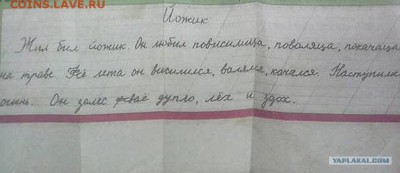 COINS.SU
Йожик
Жил был йожик. Он любил повисилица, поволяца, покачаца
на траве. Всё лета он висилился, валялся, качался. Наступила
осинь. Он залес своё дупло, лёх и здох.
YAPLAKAL.COM